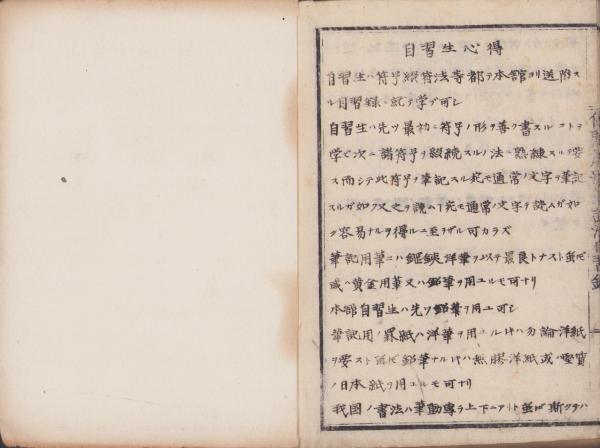 自習生心得
自習生ハ符号綴符法等都テ本館ヨリ送附ス
ル自習録ニ就テ学ブ可シ
自習生ハ先ツ最初ニ符号ノ形ヲ善ク書スルコトヲ
学ビ次ニ諸符号ヲ綴続スルノ法ニ熟練スルヲ要
ス而シテ此符号ヲ筆記スル宛モ通常ノ文字ヲ筆記
スルガ如ク又之ヲ読ム宛モ通常ノ文字ヲ読ムガ如
ク容易ナルヲ得ルニ至ラザル可カラズ
筆記用筆ニハ洋筆ヲ以テ最良トナスト雖ド
或ヘ黄金用筆又ハ鉛筆ヲ用ユルモ可ナリ
本館自習生ハ先ツ鉛筆ヲ用ユ可シ
筆記用ノ罫紙ハ洋筆ヲ用ユルトハ勿論洋紙
ヲ要スト雖ド鉛筆ナルトハ無膠洋紙或ハ堅質
ノ日本紙ヲ用ユルモ可ナリ
我国ノ書法ハ筆動専ラ上下ニアリト雖ド斯クテハ